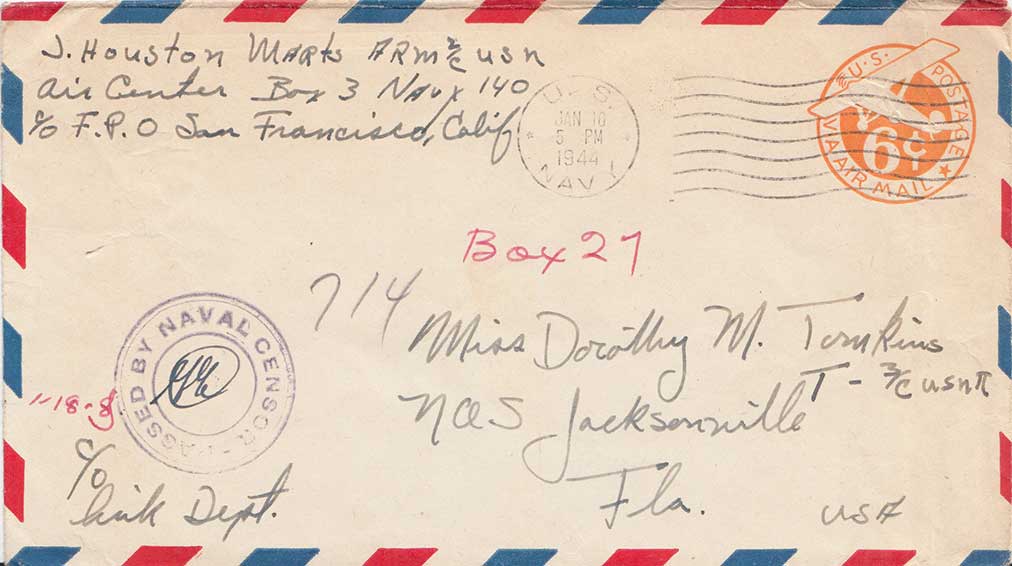 J. Houston Marks ARM 2/c USN
Air Center Box 3 Navy 140
c/o F.P.O San Francisco, Calif
U.S.
JAN 10
5 PM
1944
NAVY
U.S. POSTAGE
6¢
VIA AIR MAIL
Box 27
714
Miss Dorothy M. Tomkins
T - 3/c USNR
NAS Jacksonville
Fla.
USA
PASSED BY NAVAL CENSOR
1-18-8
c/o
Link Dept.